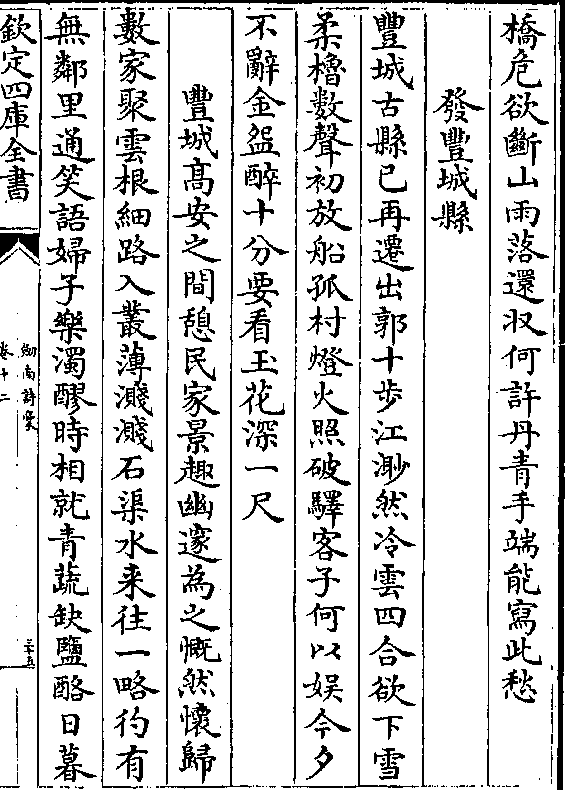 橋危欲斷山雨落還収何許丹青手端能寫此愁
發豐城縣
豐城古縣已再遷出郭十歩江渺然冷雲四合欲下雪
柔櫓數聲初放船孤村燈火照破驛客子何以娱今夕
不辭金盌醉十分要看玉花深一尺
豐城髙安之間憩民家景趣幽邃為之慨然懷歸
數家聚雲根細路入叢薄濺濺石渠水来往一略彴有
無鄰里通笑語婦子樂濁醪時相就青蔬缺鹽酪日暮
欽定四庫全書
劍南詩藁
卷十二
三十五